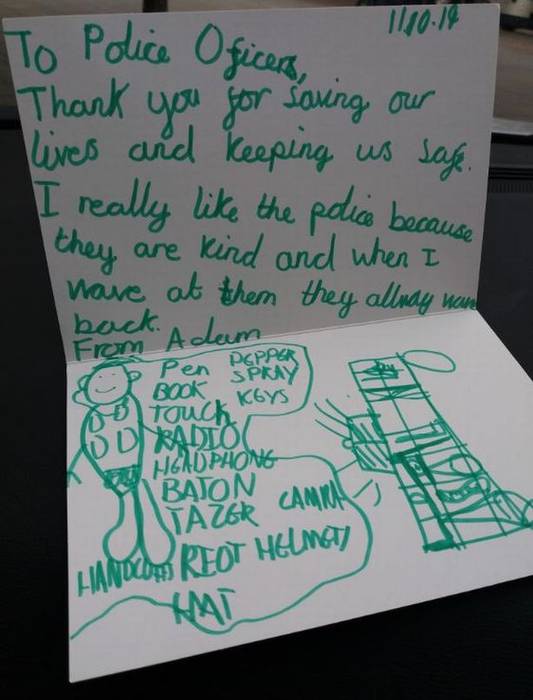 11.10.19
To Police Oficers,
Thank you for saving our
lives and keeping us safe.
I really like the police because
they are kind and when I
wave at them they allway wave
back.
From Adam
Pen
BOOK
TOUCH
RADIO
HEADPHONE
BATON
TAZER
PEPPER
SPRAY
KEYS
CAMRA
HANDCUFFS
RIOT HELMET
HAT